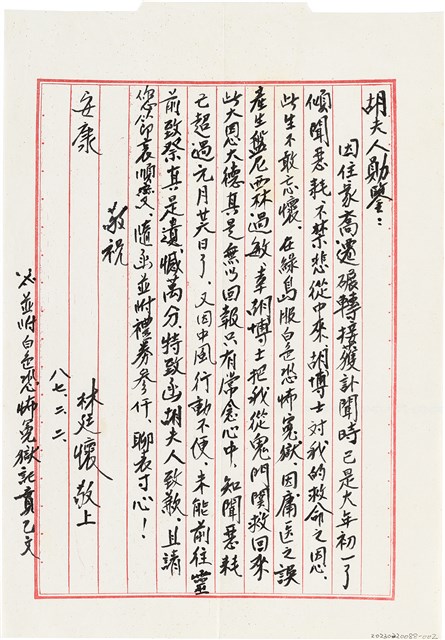 胡夫人勛鑒：
因住家喬遷輾轉接獲訃聞時已是大年初一了
傾聞惡耗不禁悲從中來胡博士對我的救命之恩、
此生不敢忘懷、在綠島服白色恐怖冤獄、因庸医之誤
產生盤尼西林過敏、幸胡博士把我從鬼門關救回來
此大恩大德真是無以回報只有常念心中、知聞惡耗
已超過元月廿六日了、又因中風行動不便、未能前往靈
前致祭真是遺憾萬分、特致函胡夫人致歉、且請
您節哀順变、隨函並附禮券參仟、聊表寸心！
敬祝
安康
林廷懷敬上
八七、二、二、
並附白色恐怖冤獄記實乙文
20230220088-002